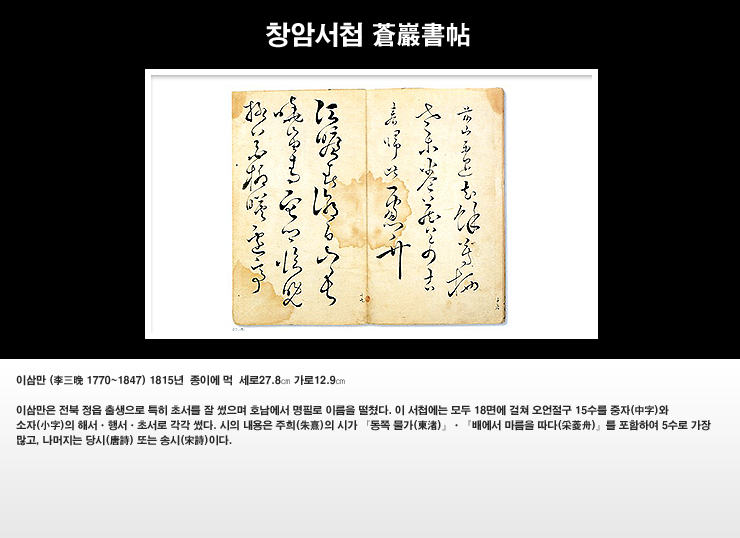 창암서첩 蒼巖書帖
江曠春潮白山長
曉岫青他鄉臨睨
極花柳映邊亭
이삼만 (李三晩 1770~1847) 1815년 종이에 먹 세로27.8㎝ 가로12.9㎝
이삼만은 전북 정읍 출생으로 특히 초서를 잘 썼으며 호남에서 명필로 이름을 떨쳤다. 이 서첩에는 모두 18면에 걸쳐 오언절구 15수를 중자(中字)와
소자(小字)의 해서·행서·초서로 각각 썼다. 시의 내용은 주희(朱熹)의 시가 「동쪽 물가(東渚)」·『배에서 마름을 따다(采菱舟)』를 포함하여 5수로 가장
많고, 나머지는 당시(唐詩) 또는 송시(宋詩)이다.